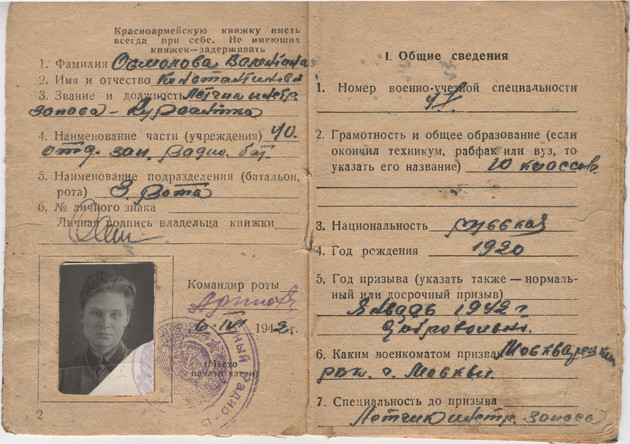 Красноармейскую книжку иметь
всегда при себе. Не имеющих
книжек—задерживать
1. Фамилия Осмолова Валентина
2. Имя и отчество Константиновна
3. Звание и должность Летчик инстр.
запаса - Курсантка
4. Наименование части (учреждения) 40.
отд. зап. радио. бат.
5. Наименование подразделения (батальон,
рота) 3. Рота
6. № личного знака
Личная подпись владельца книжки
Командир роты
194 г.
(Место
печати части)
2
I. Общие сведения
1. Номер военно-учетной специальности
2. Грамотность и общее образование (если
окончил техникум, рабфак или вуз, то
указать его название) 10 классов
3. Национальность русская
4. Год рождения 1920
5. Год призыва (указать также — нормаль-
ный или досрочный призыв)
Январь 1942 г
Добровольн.
6. Каким военкоматом призван Москварецким
рай. г. Москвы
7. Специальность до призыва
Летчик инстр. запаса